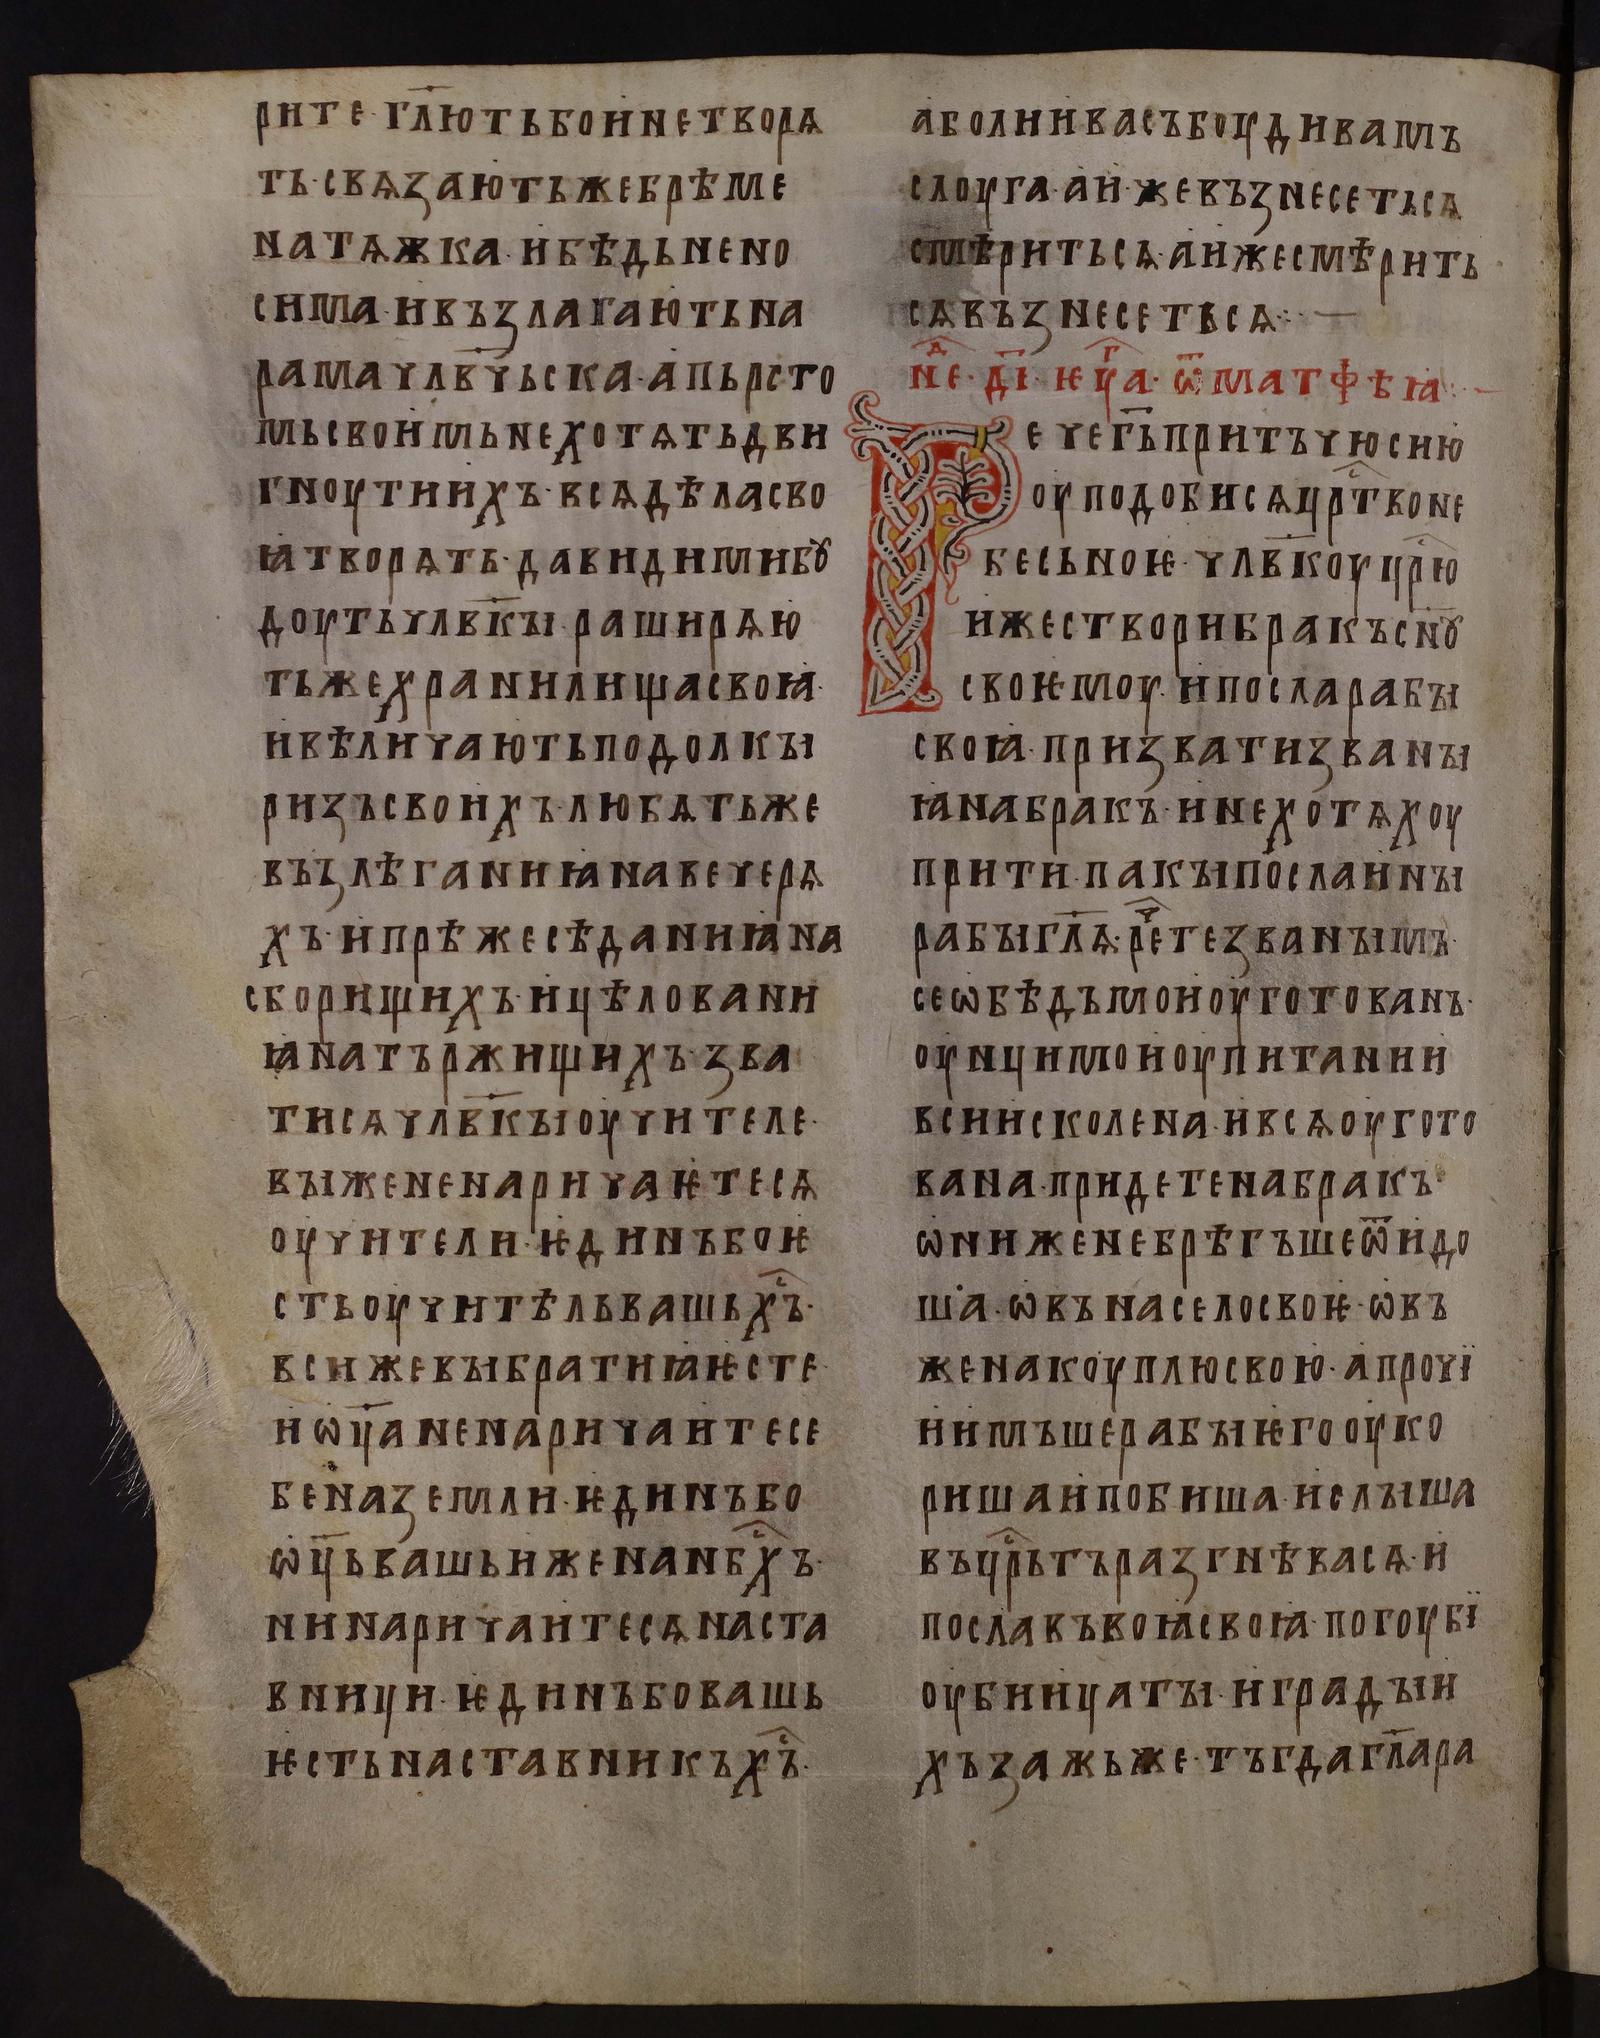 рите· гл҃ють бо и не творѧ
ть· свѧзають же брѣме
на тѧжка· и бѣдьне но
сима· и възлагають на
рама члв҃чьска· а пьрсто
мь своимь не хотѧть дви
гноути ихъ· всѧ дѣла сво
ꙗ творѧть· да видими бꙋ
доуть члв҃кы· раширѧю
ть же хранилища своꙗ·
и вѣличають подолкы
ризъ своихъ· любѧть же
възлѣганиꙗ на вечерѧ
хъ· и прѣжесѣданиꙗ на
сборищихъ· и цѣловани
ꙗ на тържищихъ· зва
тисѧ члв҃кы оучителе·
вы же не наричаѥтесѧ
оучители· ѥдинъ бо ѥ
сть оучитѣль вашь хⷭ҇ъ·
вси же вы братиꙗ ѥсте·
и ѡц҃а не наричаите се
бе на земли· ѥдинъ бо
ѡц҃ь вашь иже на нбⷭ҇хъ·
ни наричаитесѧ наста
вници· ѥдинъ бо вашь
ѥсть наставникъ хⷭ҇ъ·
а болии васъ боуди вамъ
слоуга· а иже възнесетьсѧ
смѣритьсѧ· а иже смѣрить
сѧ възнесетьсѧ·
неⷣ· д҃і· ѥуⷢ҇а· ѿ матфѣꙗ·
Рече гь҃ притъчю сию
оуподобисѧ црⷭ҇тво не
бесьноѥ· члв҃коу црⷭ҇ю
иже створи бракъ сн҃ꙋ
своѥмоу· и посла рабы
своꙗ· призвати званы
ꙗ на бракъ· и не хотѧхоу
прити· пакы посла ины
рабы гл҃ѧ· рⷰ҇ете званымъ·
се ѡбѣдъ мои оуготованъ·
оунци мои оупитании
всии сколена· и всѧ оугото
вана· придете на бракъ·
ѡни же не брѣгъше ѿидо
ша· ѡвъ на село своѥ· ѡвъ
же на коуплю свою· а прочї
и имъше рабы ѥго оуко
риша и побиша· и слыша
въ црⷭ҇ь тъ разгнѣвасѧ· и
пославъ воꙗ своꙗ· погоубї
оубиицаты· и градыи
хъ зажьже· тъгда гл҃а ра